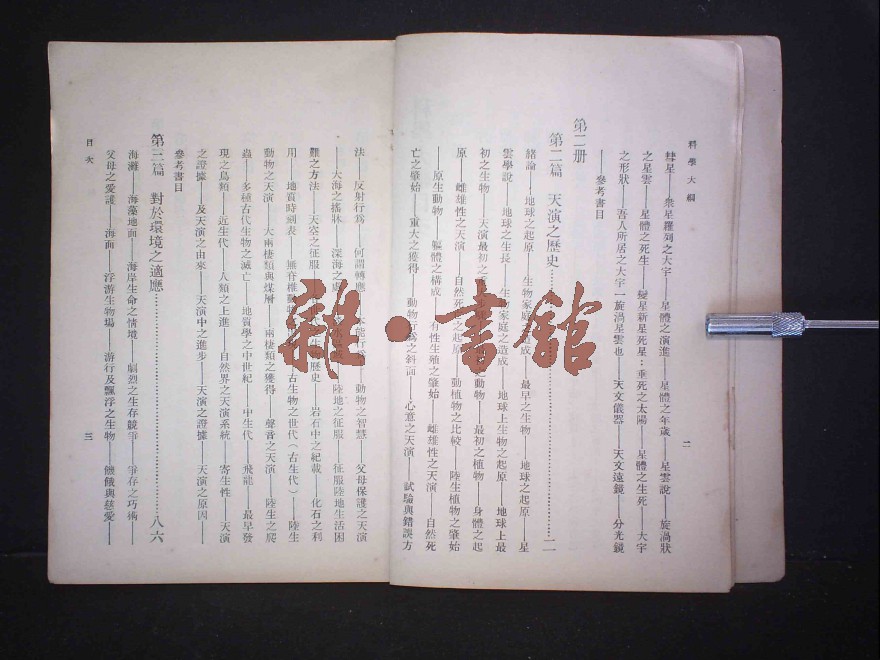 科學大綱
二
彗星──衆星羅列之大宇──星體之演進──星體之年歲──星雲說──旋渦狀
之星雲──星體之死生──變星新星死星：垂死之太陽──星體之生死──大宇
之形狀──吾人所居之大宇一旋渦星雲也──天文儀器──天文遠鏡──分光鏡
──參考書目
第二册
第二篇 天演之歷史……………………二一
緒論──地球之起原──生物家庭之造成──最早之生物──地球之起原──星
雲學說──地球之生長──生物家庭之造成──地球上生物之起原──地球上最
初之生物──天演最初之 動物──最初之植物──身體之起
原──雌雄性之天演──自然死 之起原──動植物之比較──陸生植物之肇始
──原生動物──軀體之構成──有性生殖之肇始──雌雄性之天演──自然死
亡之肇始──重大之獲得──動物行爲之斜面──心意之天演──試驗與錯誤方
法──反射行爲──何謂轉應 能行爲──動物之智慧──父母保護之天演
──大海之搖牀──深海之 陸地之征服──征服陸地生活困
難之方法──天空之征服 生物歷史──岩石中之紀載──化石之利
用──地質時刻表──無脊椎動 古生物之世代（古生代）──陸生
動物之天演──大兩棲類與煤層──兩棲類之獲得──聲音之天演──陸生之爬
蟲──多種古代生物之滅亡──地質學之中世紀──中生代──飛龍──最早發
現之鳥類──近生代──人類之上進──自然界之天演系統──寄生性──天演
之證據──及天演之由來──天演中之進步──天演之證據──天演之原因──
參考書目
第三篇 對於環境之適應……………………八六
海灘──海藻地面──海岸生命之情境──劇烈之生存競爭──爭存之巧術──
父母之愛護──海面──浮游生物場──游行及飄浮之生物──饑餓與慈愛──
目次
三
雜·書館